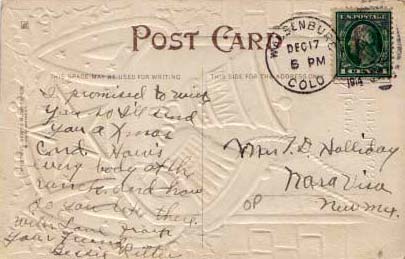 POST CARD
THIS SPACE MAY BE USED FOR WRITING
THIS SIDE FOR THE ADDRESS ONLY
WALSENBURG
DEC 17
6 PM
COLO
1914
U.S. POSTAGE
1 CENT 1
I promised to write
you so I'll send
you a Xmas
Card. How's
every body at the
ranch and how
do you like there
with Love from
your friend
Bessie Ritter
Mrs T. D. Holliday
Nara Visa
New Mex.